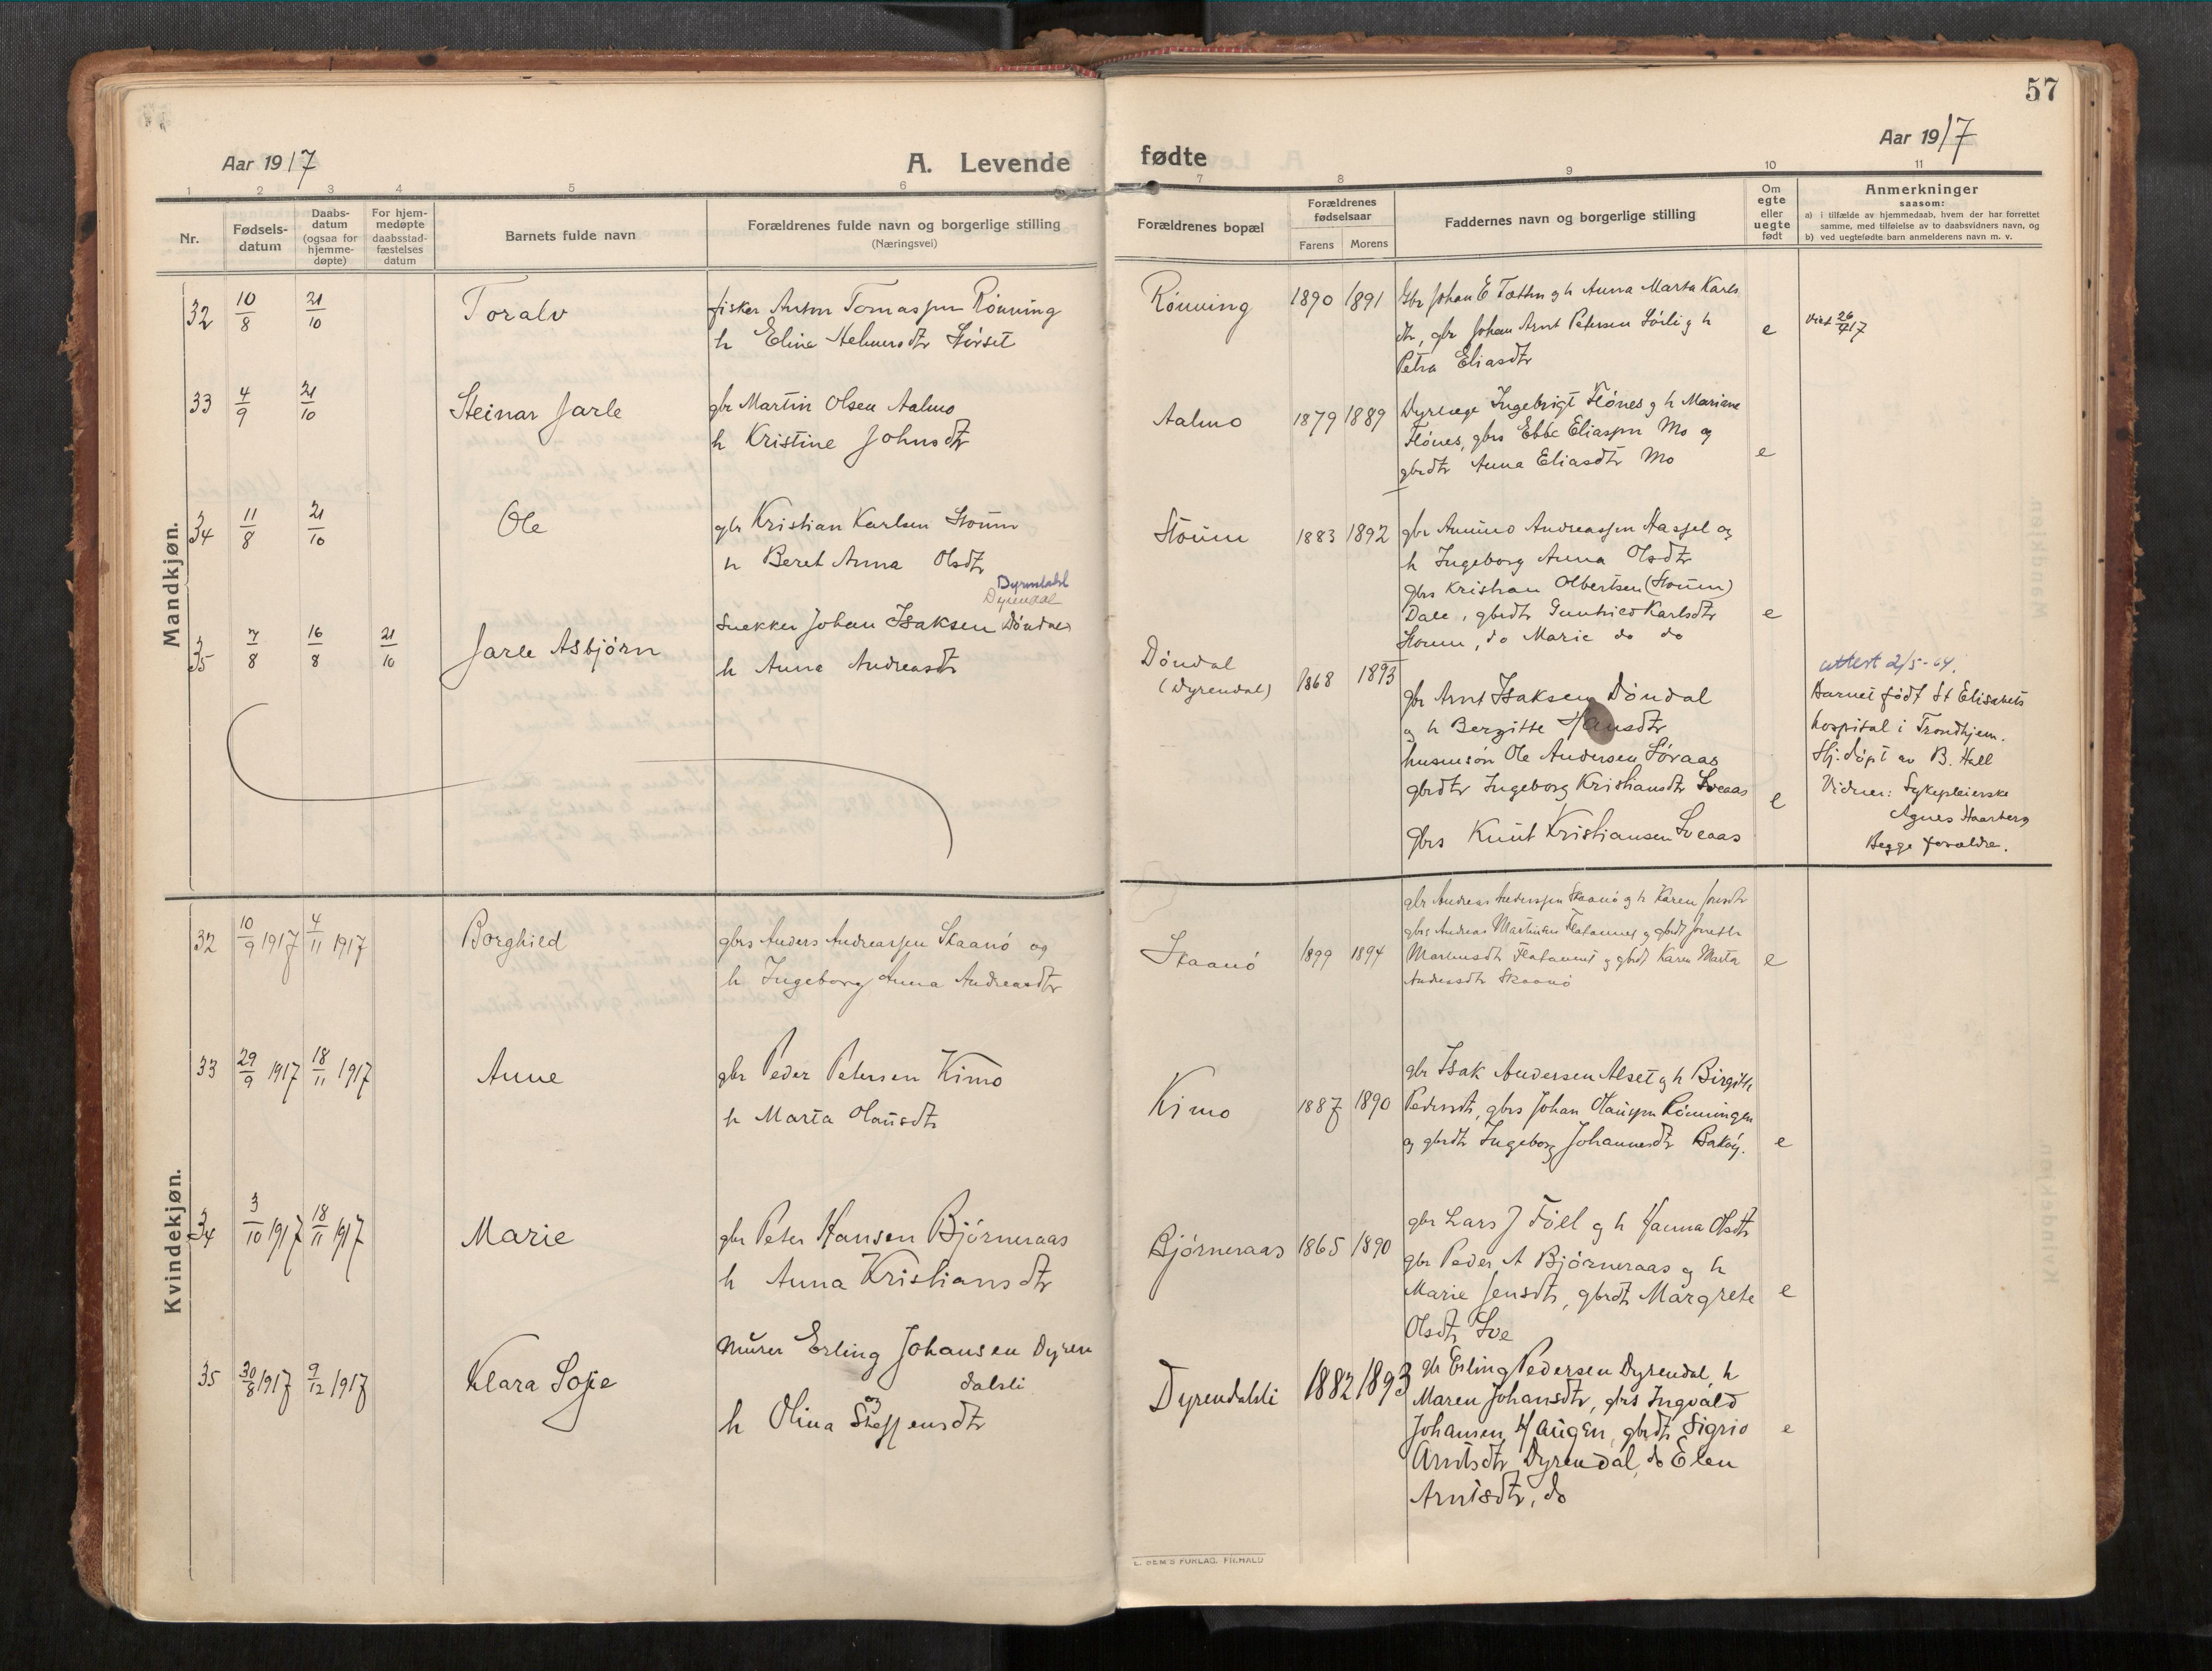 57
Aar 1917
A. Levende
fødte
Aar 1917
1 2 3 4 5 6 7 8 9 10 11
Nr.
Fødsels-
datum
Daabs-
datum
(ogsaa for
hjemme-
døpte)
For hjem-
medøpte
daabsstad-
fæstelses
datum
Barnets fulde navn
Forældrenes fulde navn og borgerlige stilling
(Næringsvei)
Forældrenes bopæl
Forældrenes
fødselsaar
Farens Morens
Faddernes navn og borgerlige stilling
Om
egte
eller
uegte
født
Anmerkninger
saasom:
a) i tilfælde av hjemmedaab, hvem der har forrettet
samme, med tilføielse av to daabsvidners navn, og
b) ved uegtefødte barn anmelderens navn m. v.
Mandkjøn.
32 10/8 21/10 Toralv
fisker Anton Tomassen Rønning
h Elina Helmersdtr Størset
Rønning 1890 1891
gbr Johan E Tætten og h Anna Marta Karls
dtr, gbr Johan Arnt Petersen Sørli og h
Petra Eliasdtr
e
26/ 17
33 4/9 21/10 Steinar Jarle
gbr Martin Olsen Aalmo
h Kristine Johnsdtr
Aalmo 1879 1889
Dyrlæge Ingebrigt Flønes og h Mariane
Flønes, gbrs Ebbe Eliassen Mo og
gbrdtr Anna Eliasdtr Mo
e
34 11/8 21/10 Ole
gbr Kristian Karlsen Stoum
h Beret Anna Olsdtr
Stoum 1883 1892
gbr Andreassen Hassel og
h Ingeborg Anna Olsdtr
gbrs Kristian Olbertsen (Stoum)
Dale, gbrdtr Karlsdtr
Stoum, do Marie do do
e
35 7/8 16/8 21/10 Jarle Asbjørn
Dyrendahl
Dyrendal
Snekker Johan Isaksen Døndal
h Anna Andreasdtr
Døndal
(Dyrendal)
1868 1893
gbr Arnt Isaksen Døndal
og h Bergitte Hansdtr
husmsøn Ole Andersen Søraas
gbrdtr Ingeborg Kristiansdtr Sveaas
gbrs Knut Kristiansen Sveaas
e
attest 2/5-64.
Barnet født St Elisabets
hospital i Trondhjem.
Hj. døpt av B. Hall
Vidner: Sykepleierske
Agnes Haarberg
Begge forældre.
Kvindekjøn.
32 10/9 1917 4/11 1917 Borghild
gbrs Anders Andreassen Skaanø og
h Ingeborg Anna Andreasdtr
Skaanø 1899 1894
gbr Andreas Anderssen Skaanø og h Karen Jonsdtr
gbrs Andreas Martinsen og gbrdt
Martinsdtr og gbrdt Karen Marta
Andreasdtr Skaanø
e
33 29/9 1917 18/11 1917 Anne
gbr Peder Petersen Kimo
h Marta Olausdtr
Kimo 1887 1890
gbr Isak Andersen Alset og h Birgitte
Pedersdtr, gbrs Johan Olaussen Rønningen
og gbrdtr Ingeborg Johannesdtr Bakøy.
e
34 3/10 1917 18/11 1917 Marie
gbr Peter Hansen Bjørneraas
h Anna Kristiansdtr
Bjørneraas 1865 1890
gbr Lars J Føll og h Hanna Olsdtr
gbr Peder A Bjørneraas og h
Marie Jensdtr, gbrdtr Margrete
Olsdtr Sve
e
35 30/8 1917 9/12 1917 Klara Sofie
Murer Erling Johansen Dyren
dalsli
og
h Olina Steffensdtr
Dyrendalsli 1882 1893
gbr Erling Pedersen Dyrendal, h
Maren Johansdtr, gbrs Ingvald
Johansen Haugen, gbrdtr Sigrid
Arntsdtr Dyrendal, do Elen
Arntsdtr, do
e
E. SEM'S FORLAG, F.HALD